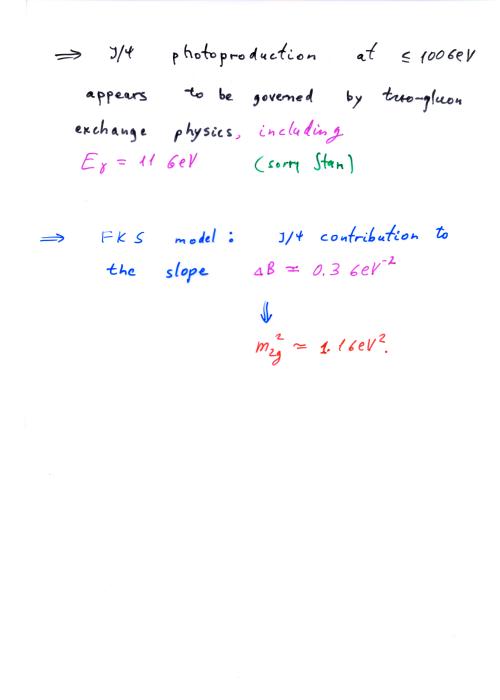 ⇒ J/ψ photoproduction at ≤ 100 GeV
appears to be governed by two-gluon
exchange physics, including
E_γ = 11 GeV (sorry Stan)
⇒ FKS model: J/ψ contribution to
the slope ΔB ≃ 0.3 GeV^-2
⇓
m_2g^2 ≃ 1.1 GeV^2.